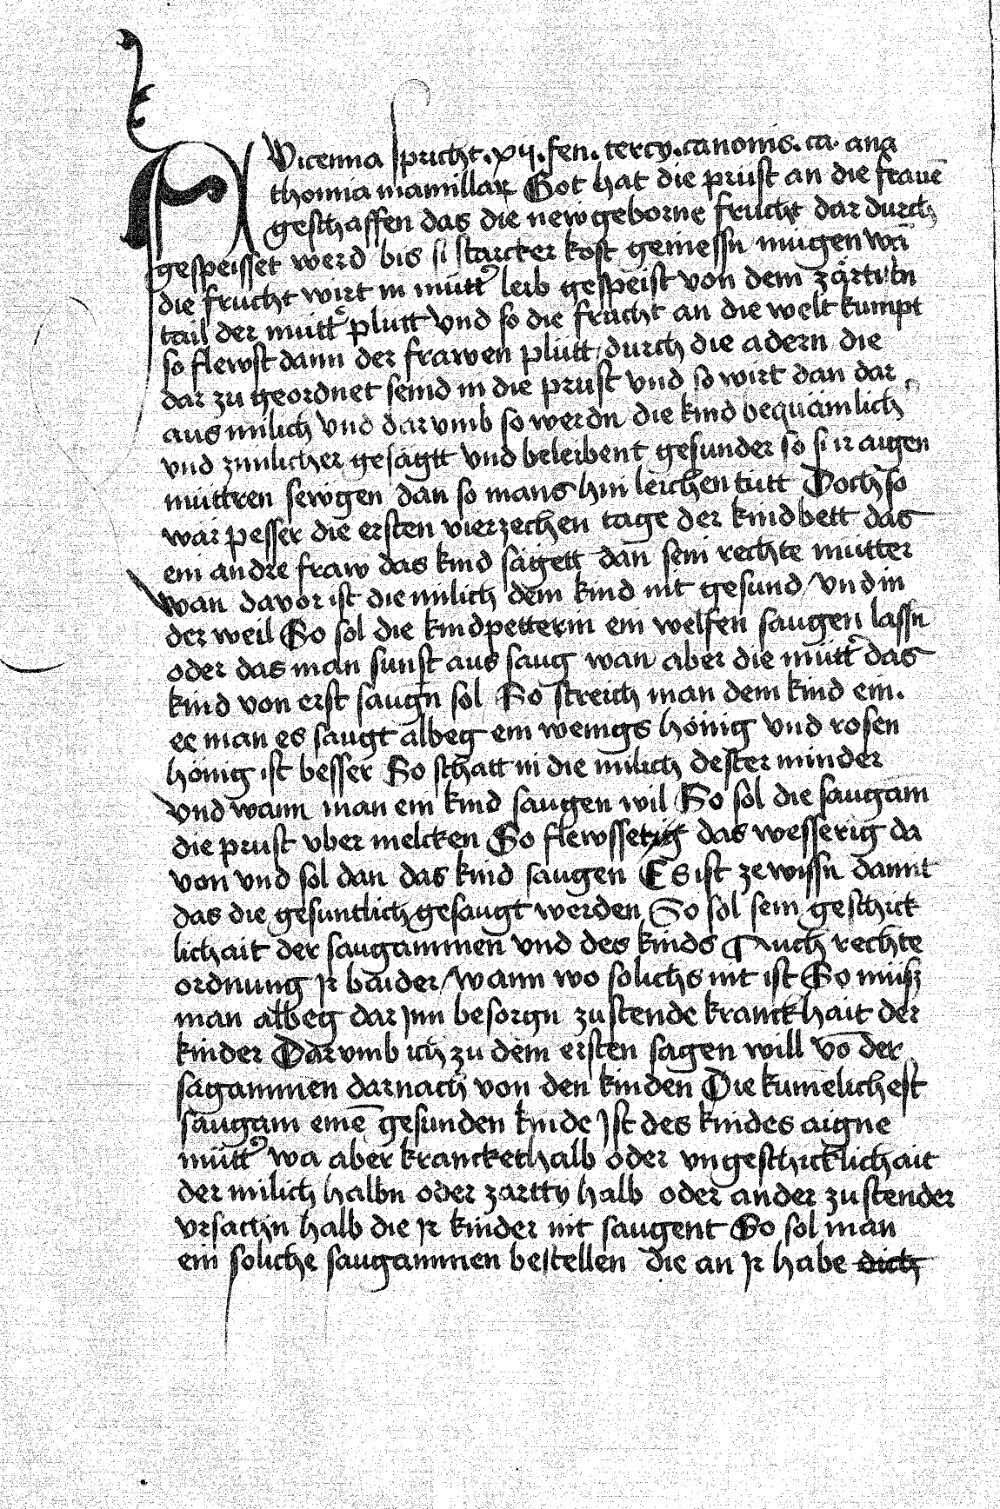 AVicenna spricht .xij. fen. tercy. canonis. ca. ana
thomia mamillarꝝ Got hat die prüst an die frauē
geschaffen das die new geborne frucht dar durch
gespeisset werd bis si starcker kost geniessn mügen wā
die frucht wirt in mütt᾽ leib gespeist von dem zärtistn
tail der mütt᾽ plutt Vnd so die frucht an die welt kumpt
so flewst dann der frawen plütt / durch die adern die
dar zu geordnet seind in die prüst vnd so wirt dan dar
aus milich Vnd dar vmb so werdn die kind bequämlich
vnd zimlicher gesägtt vnd beleibent gesunder so si ir aigen
müttren sewgen dan so mans hin leichen tütt Doch so
wär pesser die ersten vierzechen tage der kindbett das
ein andre fraw das kind sägett dan sein rechte mutter
wan davor ist die milich dem kind nit gesund / vnd in
der weil So sol die kindpetterin ein welfen saugen lassn
oder das man sunst aus saug wan aber die mütt᾽ das
kind von erst saugn sol So streich man dem kind ein.
ee man es saugt albeg ein wenigs hönig Vnd rosen
hönig ist besser So schatt in die milich dester minder
Vnd wann man ein kind saugen wil So sol die saugam
die prust vber melcken So flewsset das wesserig da
von vnd sol dan das kind saugen Es ist ze wissn damit
das die gesuntlich gesaugt werden So sol sein geschick
lichait der saugammen vnd des kinds Auch rechte
ordnung jr baider / wann wo solichs nit ist So müsz
man albeg dar jnn besorgn zustende kranckhait der
kinder Dar vmb ich zu dem ersten sagen will vō der
sägammen darnach von den kinden Die kumelichest
saugam einē gesunden kinde Jst des kindes aigne
mütt᾽ wa aber kranckethalb oder vngeschicklichait
der milich halbn oder zartty halb oder ander zustender
vrsachn halb die jr kinder nit saugent So sol man
ein soliche saugammen bestellen die an jr habe dich